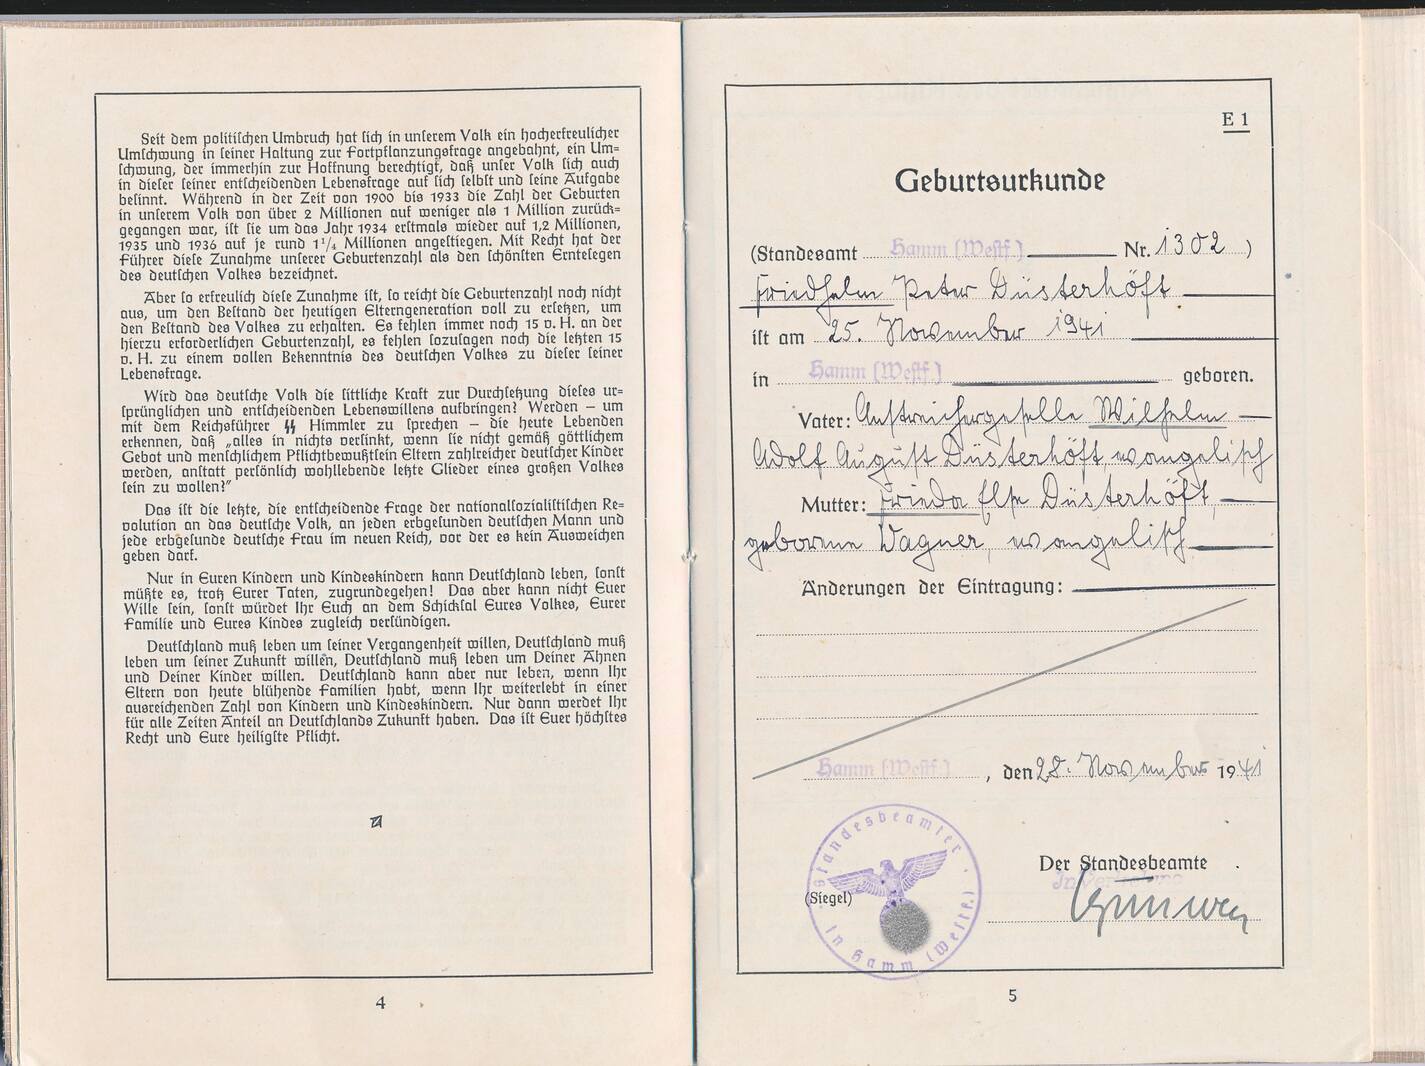 Seit dem politischen Umbruch hat sich in unserem Volk ein hocherfreulicher
Umschwung in seiner Haltung zur Fortpflanzungsfrage angebahnt, ein Um=
schwung, der immerhin zur Hoffnung berechtigt, daß unser Volk sich auch
in dieser seiner entscheidenden Lebensfrage auf sich selbst und seine Aufgabe
besinnt. Während in der Zeit von 1900 bis 1933 die Zahl der Geburten
in unserem Volk von über 2 Millionen auf weniger als 1 Million zurück=
gegangen war, ist sie um das Jahr 1934 erstmals wieder auf 1,2 Millionen,
1935 und 1936 auf je rund 1¹/₄ Millionen angestiegen. Mit Recht hat der
Führer diese Zunahme unserer Geburtenzahl als den schönsten Erntesegen
des deutschen Volkes bezeichnet.
Aber so erfreulich diese Zunahme ist, so reicht die Geburtenzahl noch nicht
aus, um den Bestand der heutigen Elterngeneration voll zu ersetzen, um
den Bestand des Volkes zu erhalten. Es fehlen immer noch 15 v. H. an der
hierzu erforderlichen Geburtenzahl, es fehlen sozusagen noch die letzten 15
v. H. zu einem vollen Bekenntnis des deutschen Volkes zu dieser seiner
Lebensfrage.
Wird das deutsche Volk die sittliche Kraft zur Durchsetzung dieses ur=
sprünglichen und entscheidenden Lebenswillens aufbringen? Werden – um
mit dem Reichsführer SS Himmler zu sprechen – die heute Lebenden
erkennen, daß „alles in nichts versinkt, wenn sie nicht gemäß göttlichem
Gebot und menschlichem Pflichtbewußtsein Eltern zahlreicher deutscher Kinder
werden, anstatt persönlich wohllebende letzte Glieder eines großen Volkes
sein zu wollen?"
Das ist die letzte, die entscheidende Frage der nationalsozialistischen Re=
volution an das deutsche Volk, an jeden erbgesunden deutschen Mann und
jede erbgesunde deutsche Frau im neuen Reich, vor der es kein Ausweichen
geben darf.
Nur in Euren Kindern und Kindeskindern kann Deutschland leben, sonst
müßte es, trotz Eurer Taten, zugrundegehen! Das aber kann nicht Euer
Wille sein, sonst würdet Ihr Euch an dem Schicksal Eures Volkes, Eurer
Familie und Eures Kindes zugleich versündigen.
Deutschland muß leben um seiner Vergangenheit willen, Deutschland muß
leben um seiner Zukunft willen, Deutschland muß leben um Deiner Ahnen
und Deiner Kinder willen. Deutschland kann aber nur leben, wenn Ihr
Eltern von heute blühende Familien habt, wenn Ihr weiterlebt in einer
ausreichenden Zahl von Kindern und Kindeskindern. Nur dann werdet Ihr
für alle Zeiten Anteil an Deutschlands Zukunft haben. Das ist Euer höchstes
Recht und Eure heiligste Pflicht.
4
E 1
Geburtsurkunde
(Standesamt Hamm (Westf.) Nr. 1302)
Friedhelm Peter Düsterhöft
ist am 25. November 1941
in Hamm (Westf.) geboren.
Vater: Anstreichergeselle Wilhelm
Adolf August Düsterhöft, evangelisch
Mutter: Frieda Else Düsterhöft,
geborene Wagner, evangelisch
Änderungen der Eintragung:
Hamm (Westf.), den 28. November 1941
Der Standesbeamte
In Vertretung
(Siegel)
Standesbeamter
in Hamm (Westf.)
5